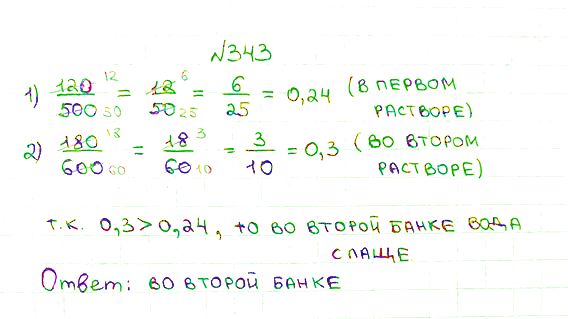 №343
1) 120/500 12/50 = 12/50 6/25 = 6/25 = 0,24 (в первом
растворе)
2) 180/600 18/60 = 18/60 3/10 = 3/10 = 0,3 (во втором
растворе)
т.к. 0,3 > 0,24, то во второй банке вода
слаще
Ответ: во второй банке